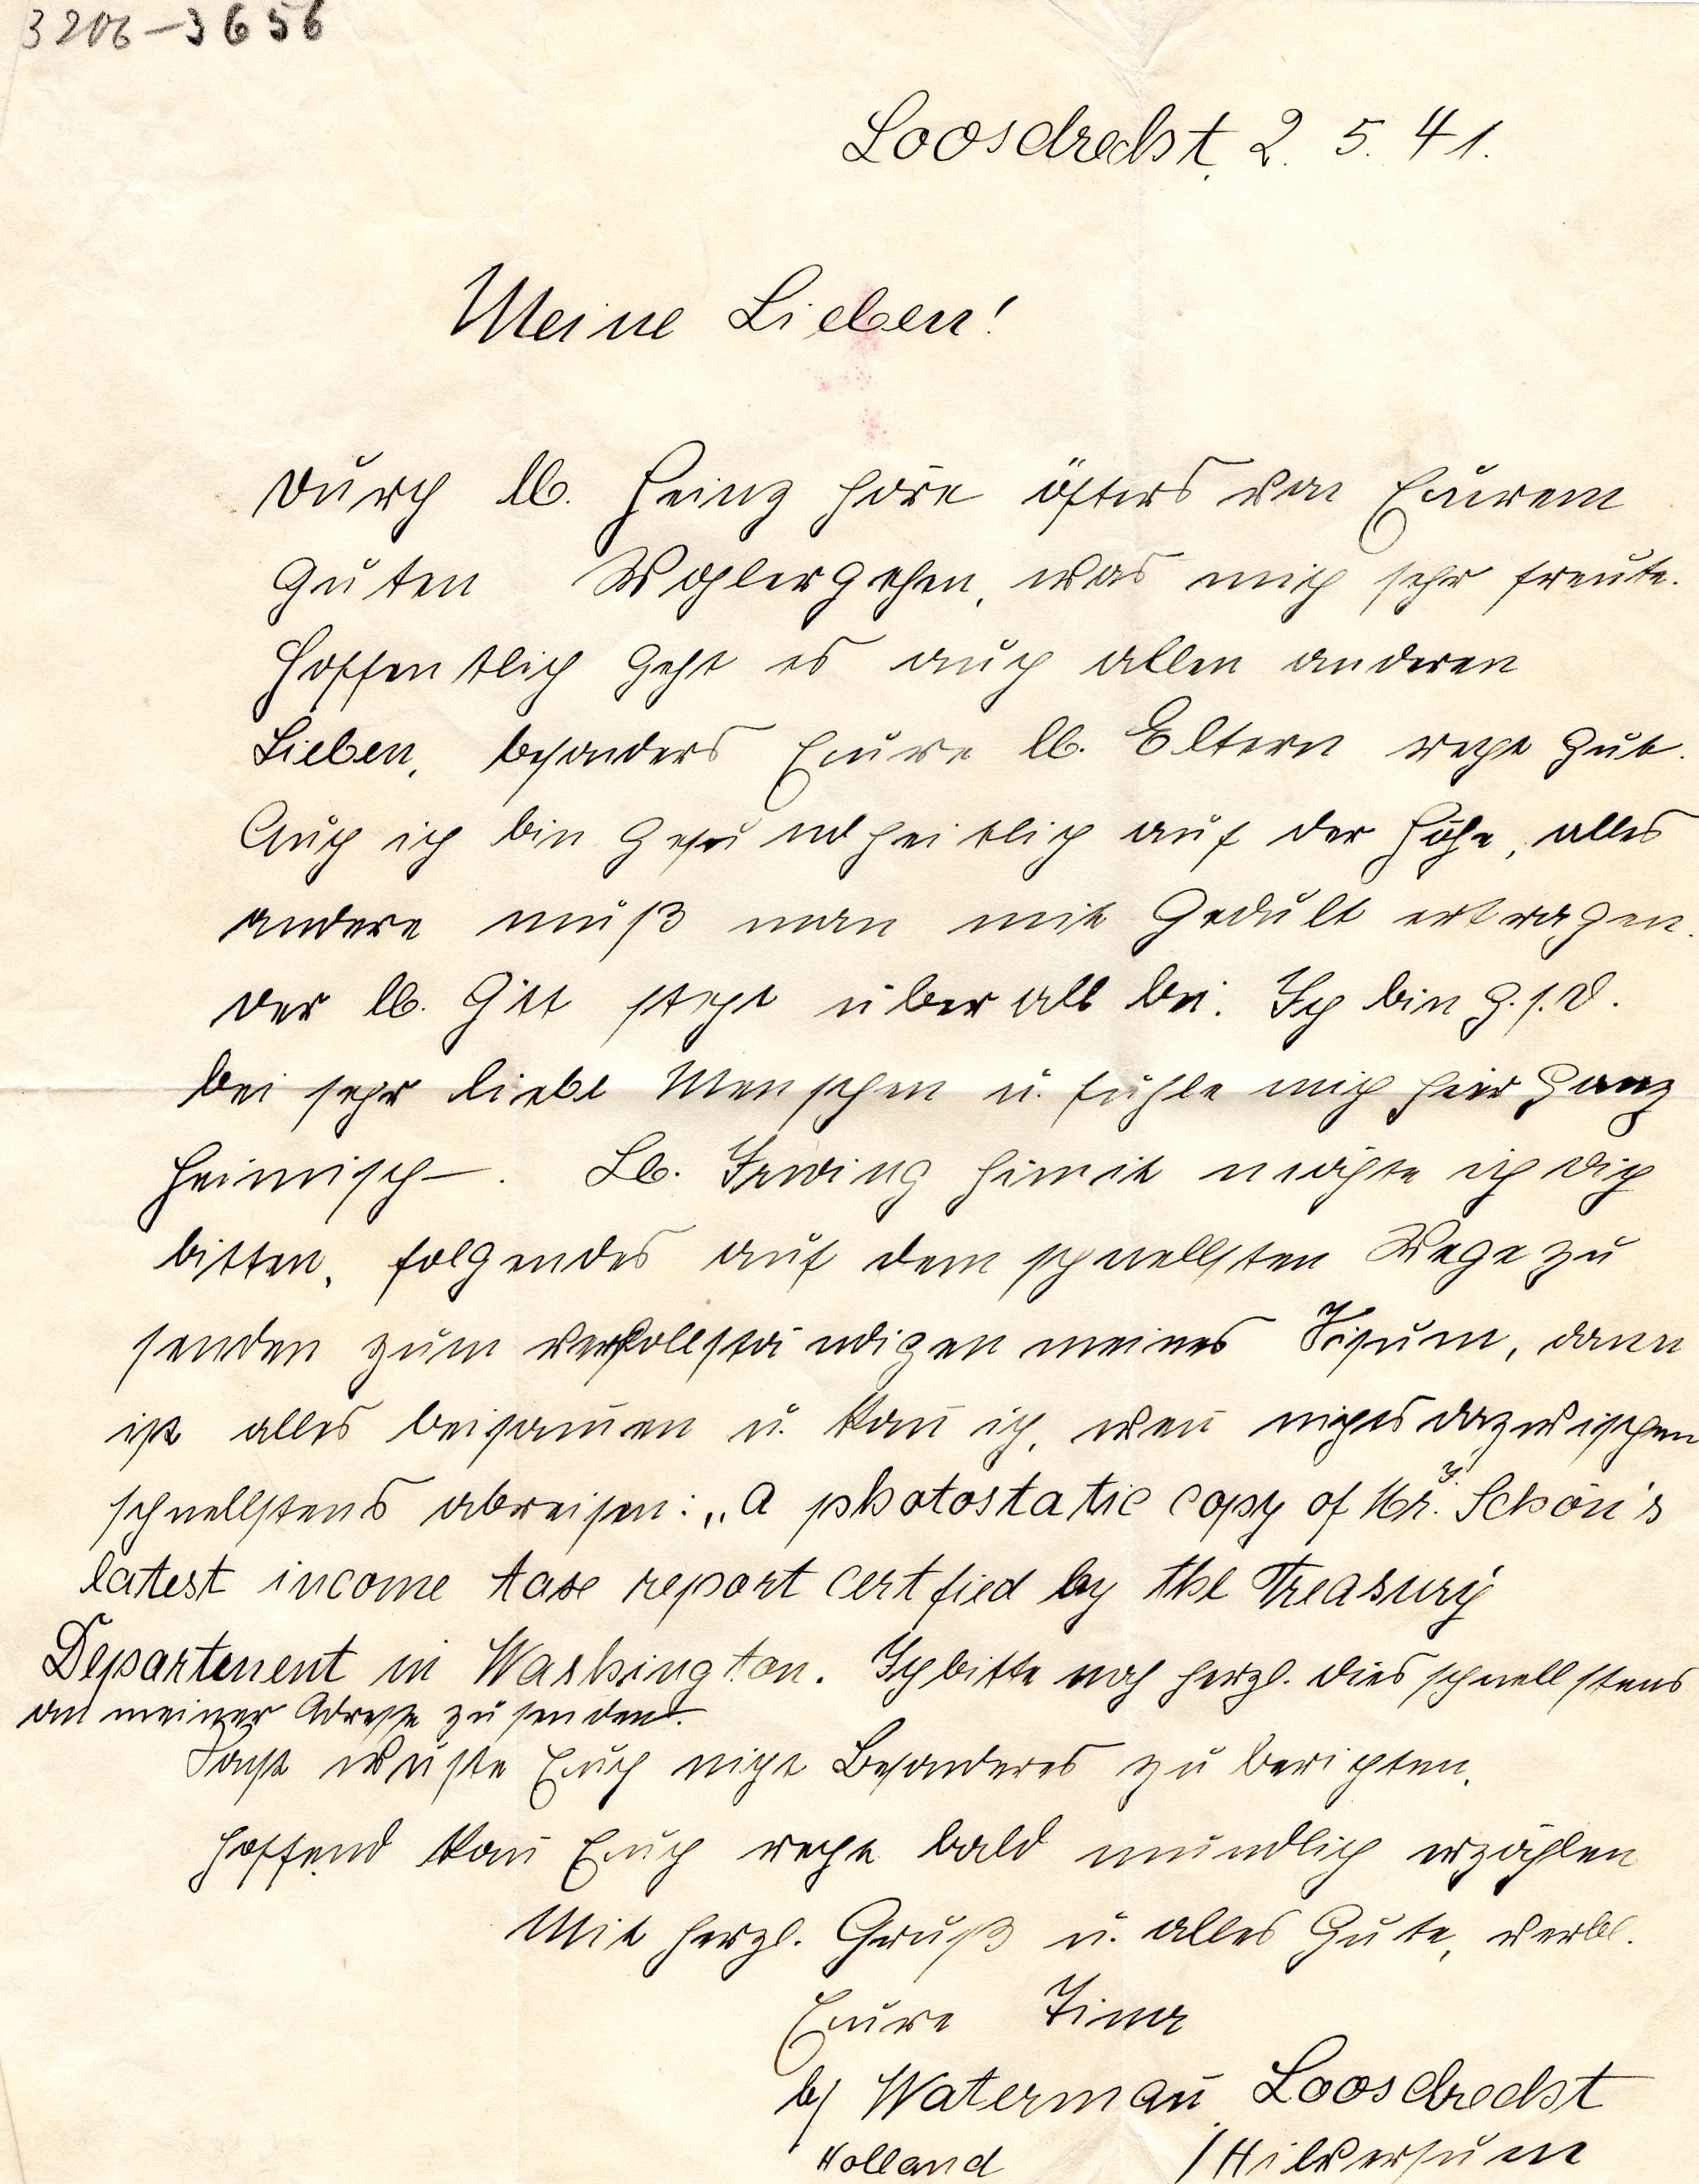 3206-3656
Loosdrecht, 2. 5. 41.
Meine Lieben!
Durch lb. Heinz höre öfters von Eurem
guten Wohlergehen, was mich sehr freute.
Hoffentlich geht es auch allen anderen
Lieben, besonders Eure lb. Eltern recht gut.
Auch ich bin gesundheitlich auf der Höhe, alles
andere muß man mit Gedult ertragen.
Der lb. Gtt steht überall bei. Ich bin G.s.D.
bei sehr liebe Menschen u. fühle mich hier ganz
heimisch–. Lb. Irwing hiermit möchte ich dich
bitten, folgendes auf dem schnellsten Wege zu
senden zum vervollständigen meines Visum, dann
ist alles beisam̄en u. kan̄ ich, wen̄ nichts dazwischen
schnellstens abreisen: „A photostatic copy of Mr. Schön's
latest income taxe report certfied by the Treasury
Departement in Washington. Ich bitte noch herzl. dies schnellstens
an meiner Adresse zu senden.
Sonst wüßte Euch nicht Besonderes zu berichten.
Hoffend kan̄ Euch recht bald mündlich erzählen
Mit herzl. Gruß u. alles Gute, verbl.
Eure
b/ Waterman̄, Loosdrecht
Holland /Hilversum